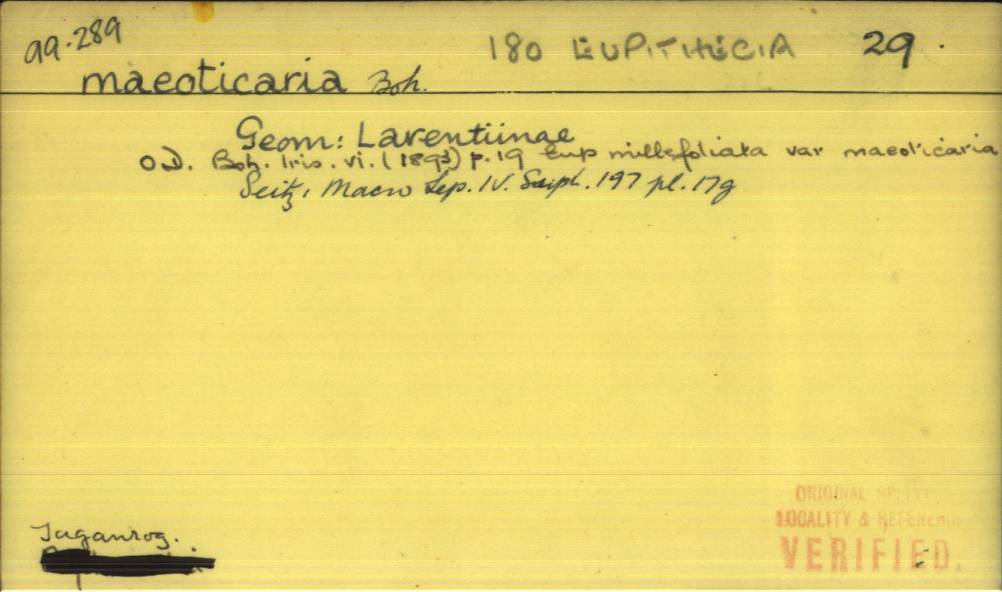 99.289
180 EUPITHECIA 29.
maeoticaria Boh.
Geom: Larentiinae
O.D. Boh. Iris. vi. (1893) p.19 Eup millefoliata var maeoticaria
Seitz, Macro Lep. IV. Suppl. 197 pl. 17g
Taganrog.
ORIGINAL
LOCALITY & REFERENCE
VERIFIED.